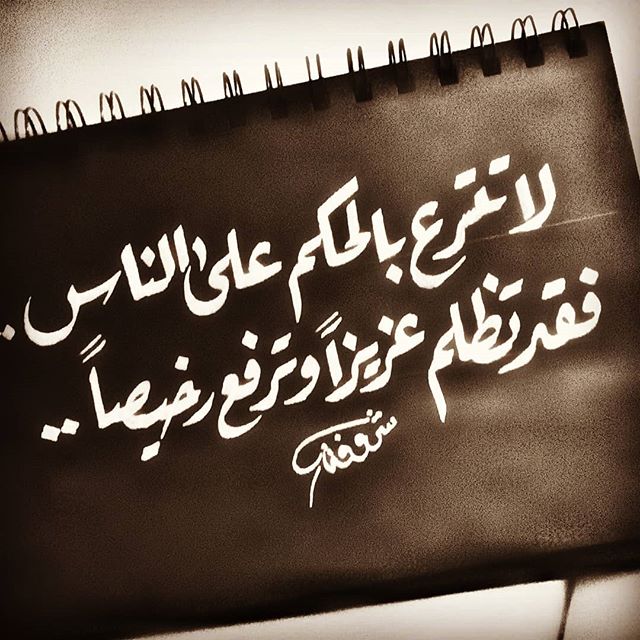 لا تتسرع بالحكم على الناس .
فقد تظلم عزيزاً وترفع رخيصاً ..